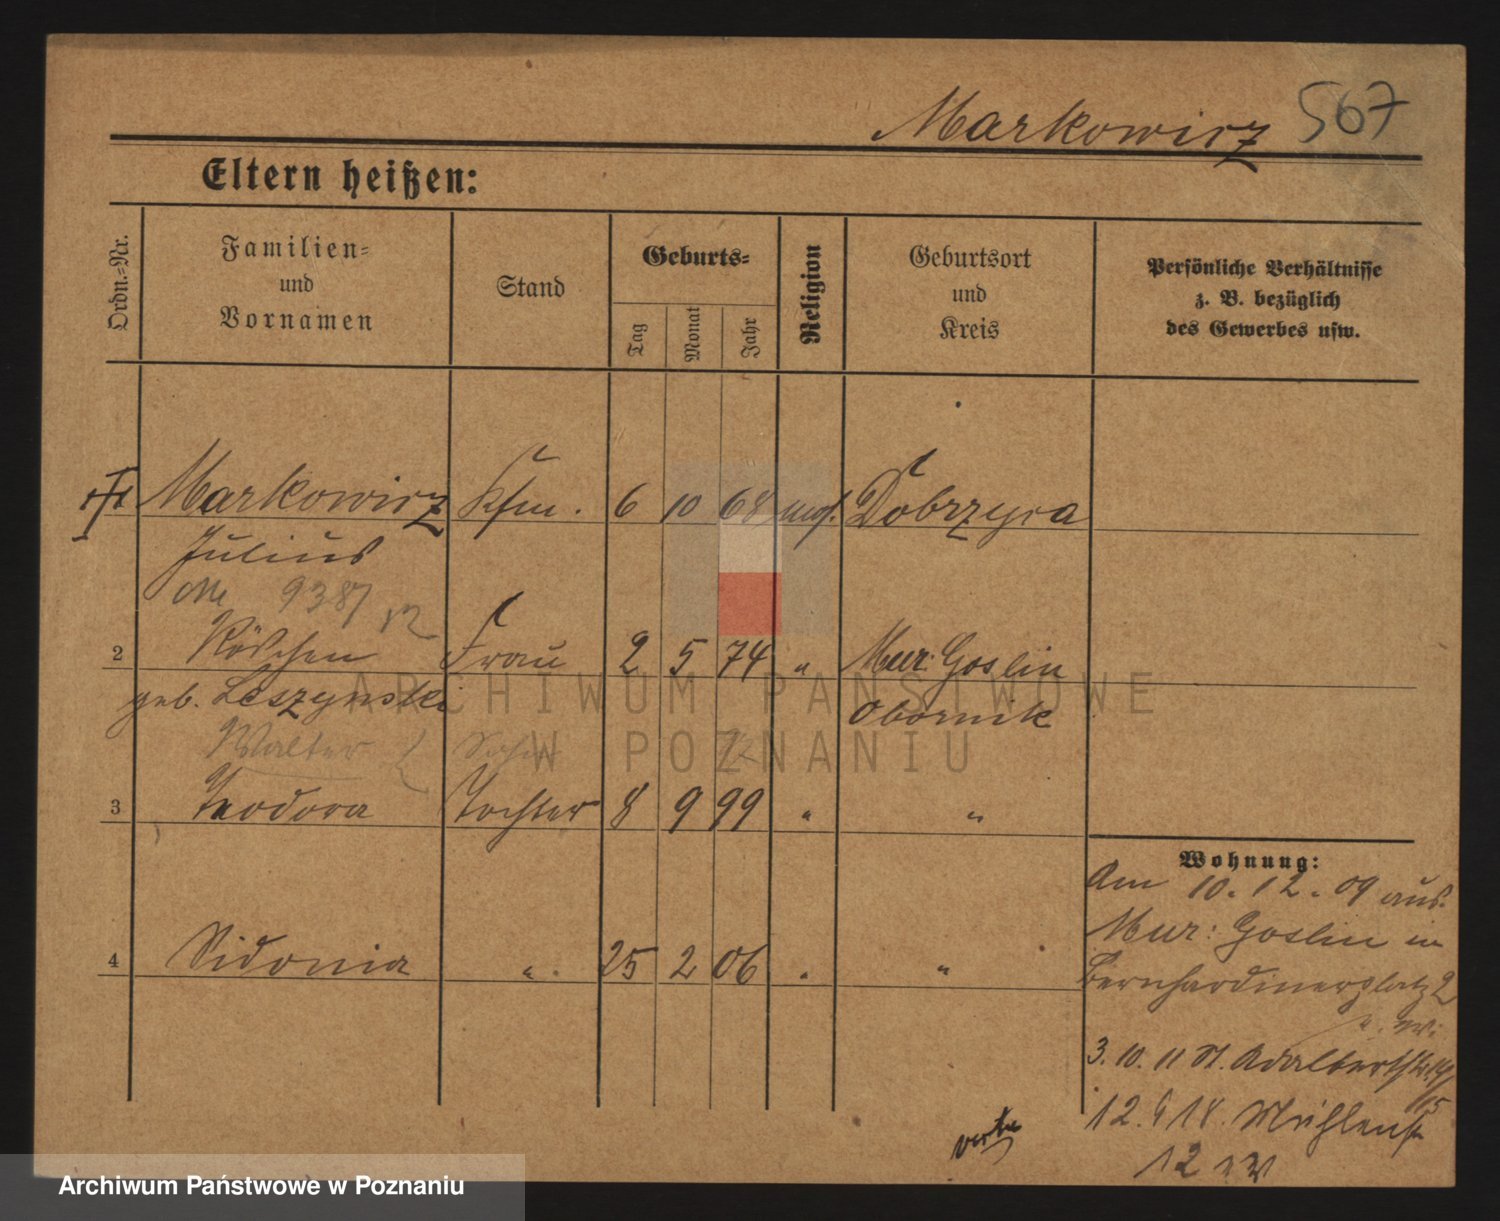 Markowicz 567
Eltern heißen:
Ordn.=Nr.
Familien=
und
Vornamen
Stand
Geburts=
Tag
Monat
Jahr
Religion
Geburtsort
und
Kreis
Persönliche Verhältnisse
z. B. bezüglich
des Gewerbes usw.
Markowicz Kfm. 6 10 68 mos. Dobrzyca
Julius
9387
2 Röschen Frau 2 5 74 " Mur: Goslin
geb. Leszynski Obornik
Walter Sohn
3 Teodora Tochter 8 9 99 " "
Wohnung:
Am 10. 12. 09 aus.
Mur: Goslin in
4 Sidonia " 25 2 06 " "
Bernhardinerplatz 2
3. 10. 11 St. Adalbertstr. 14/
15
12. 9 18. Mühlenstr
12
verte
ARCHIWUM PAŃSTWOWE
W POZNANIU
Archiwum Państwowe w Poznaniu